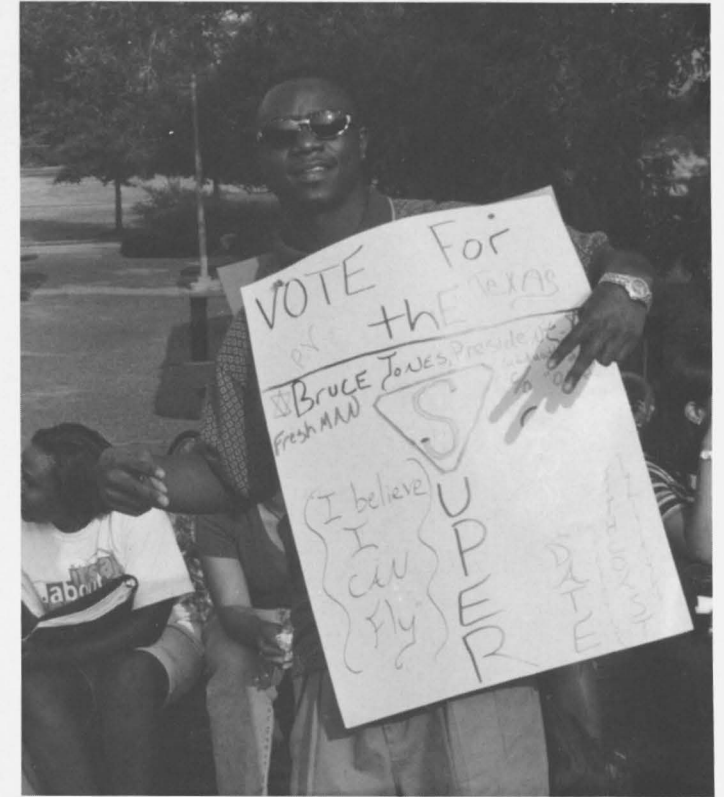 VOTE For
the Texas
BRUCE JONES, President
FreshMAN
SUPER
I believe
I
CAN
Fly
DATE